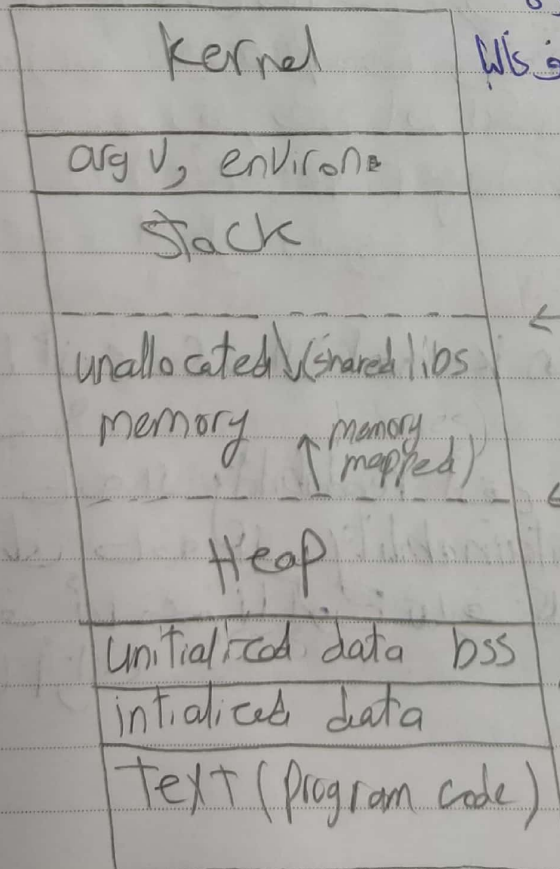 kernel
argv, environ
stack
unallocated (shared libs
memory
memory
mapped)
Heap
unitialized data bss
intialized data
text (program code)